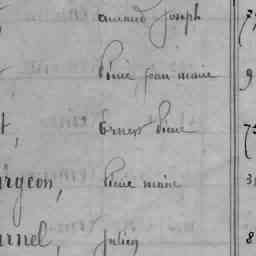 armand Joseph 7
Pierre jean marie 9
t, Ernest Pierre 7
urgeon, Pierre marie 3
urnel, Julien 8